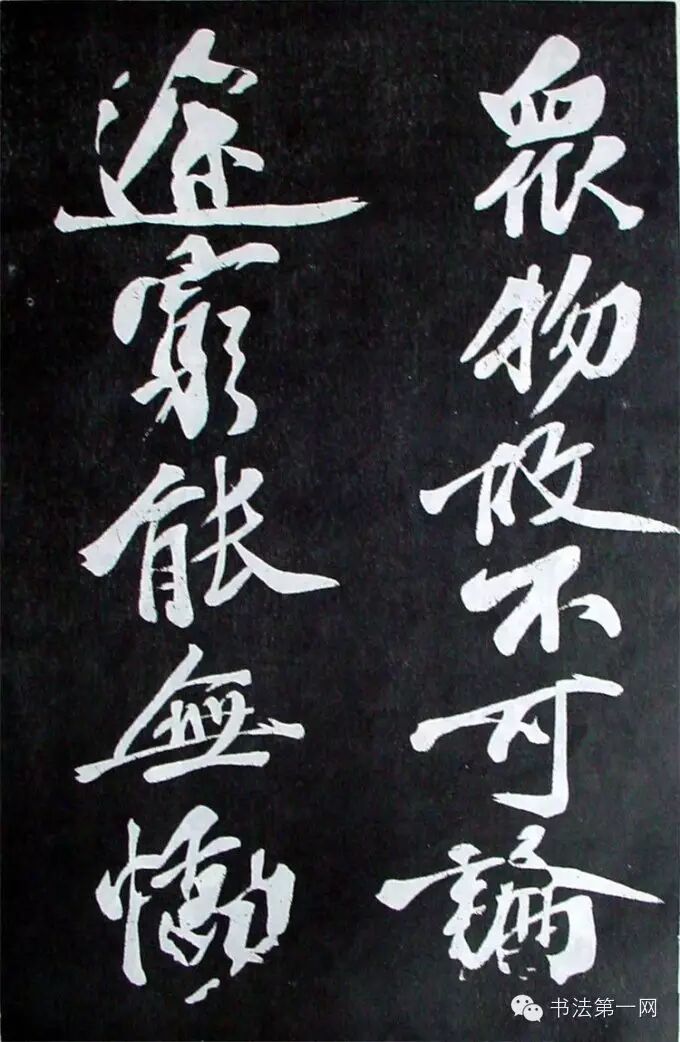 眾物故不可論
途窮能無慟
书法第一网